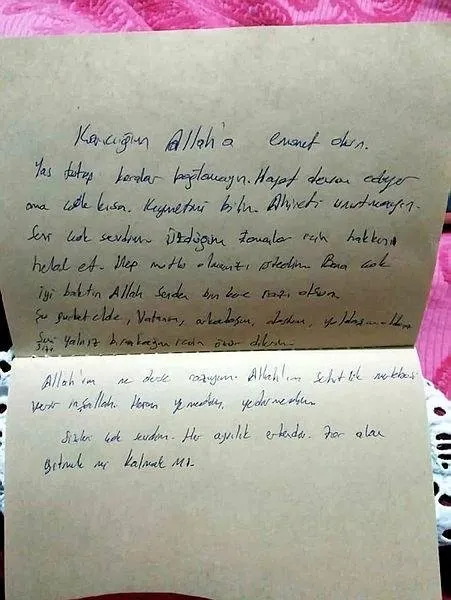 Karıcığım Allah'a emanet olun.
Yas tutup karalar bağlamayın. Hayat devam ediyor
ama çok kısa. Kıymetini bilin. Ahireti unutmayın.
Seni çok sevdim. Üzdüğüm zamanlar için hakkını
helal et. Hep mutlu olmanızı istedim. Bana çok
iyi baktın Allah senden bin kere razı olsun.
Şu gurbet elde, Vatanım, arkadaşım, dostum, yoldaşım oldun.
Sizi yalnız bıraktığım için özür dilerim.
Allah'ım ne derse razıyım. Allah'ım şehitlik mertebesi
verir inşallah. Haram yemedim, yedirmedim.
Sizleri çok sevdim. Her ayrılık erkendir. Zor olan
gitmek mi kalmak mı.